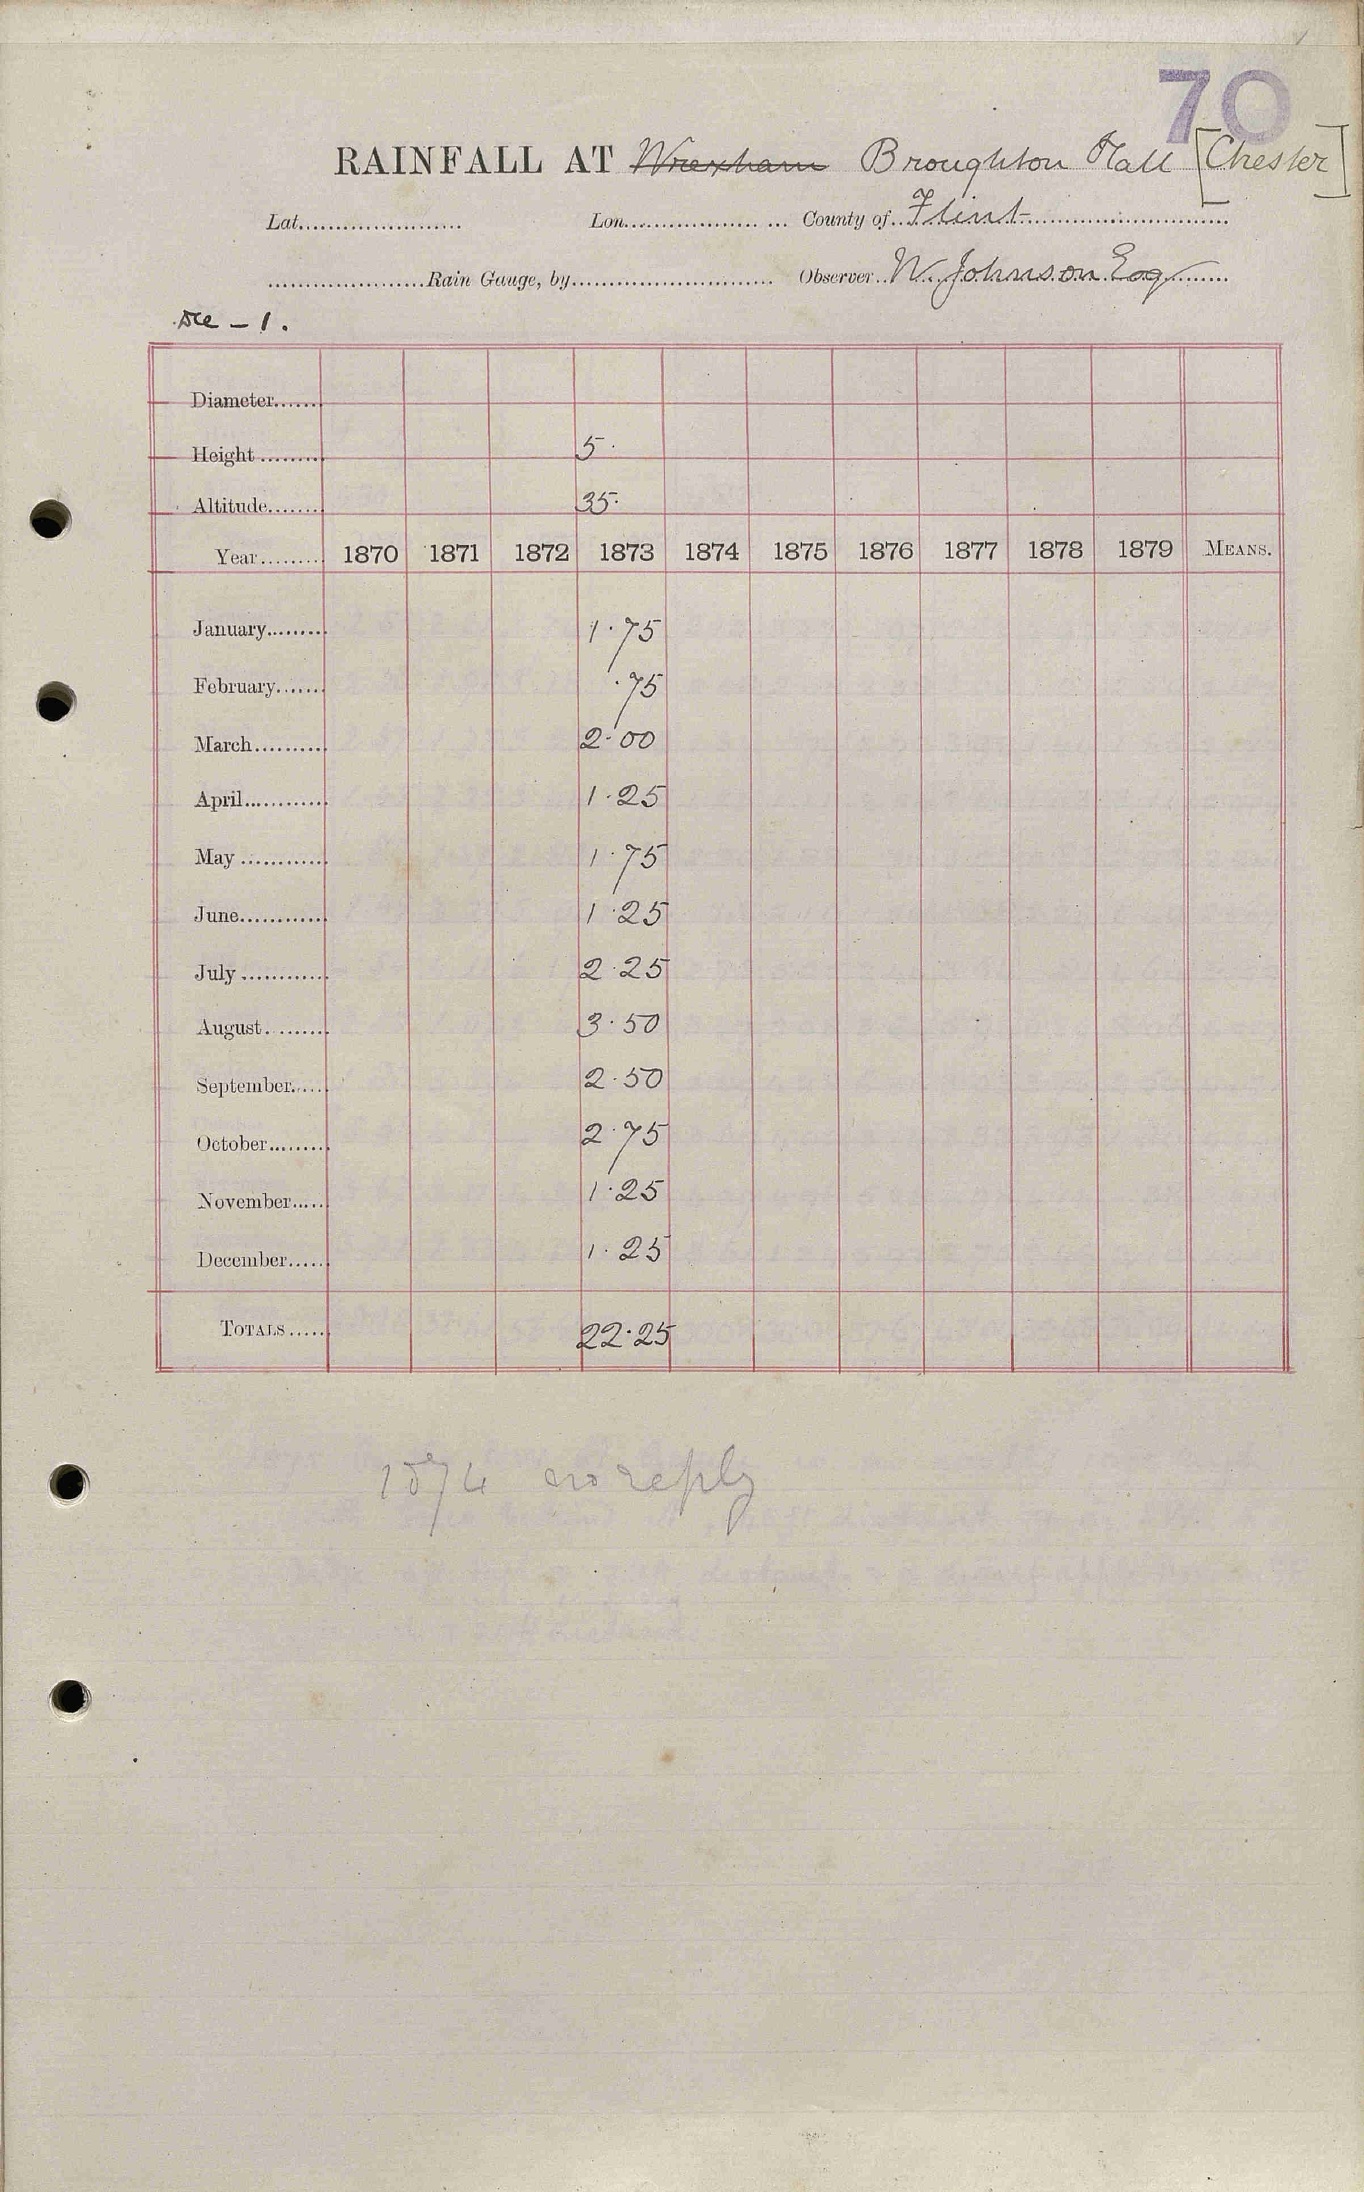 70
RAINFALL AT Wrexham Broughton Hall [Chester]
Lat. Lon. County of Flint
Rain Gauge, by Observer W. Johnson Esq
De - 1.
Diameter
Height 5.
Altitude 35.
Year 1870 1871 1872 1873 1874 1875 1876 1877 1878 1879 MEANS.
January 1.75
February .75
March 2.00
April 1.25
May 1.75
June 1.25
July 2.25
August 3.50
September 2.50
October 2.75
November 1.25
December 1.25
TOTALS 22.25
1874 no reply